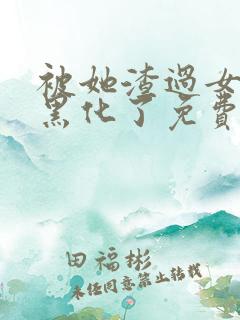 被她渣過女
黑化了免費
田福彬
未任同意禁止转载